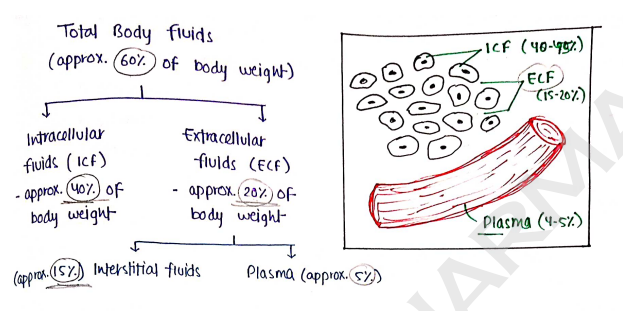 Total Body fluids
(approx. 60% of body weight)
Intracellular
fluids (ICF)
- approx. 40% of
body weight
Extracellular
fluids (ECF)
- approx. 20% of
body weight
(approx. 15%) Interstitial fluids
Plasma (approx. 5%)
ICF (40-45%)
ECF
(15-20%)
Plasma (4-5%)